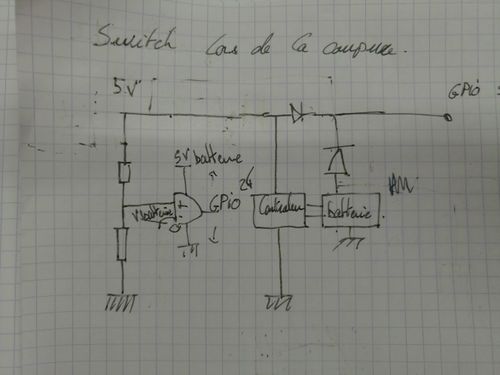 Switch lors de la coupure.
5V
GPiO 5
5V batterie
24
Vbatterie
GPiO
Controleur
batterie
+
-